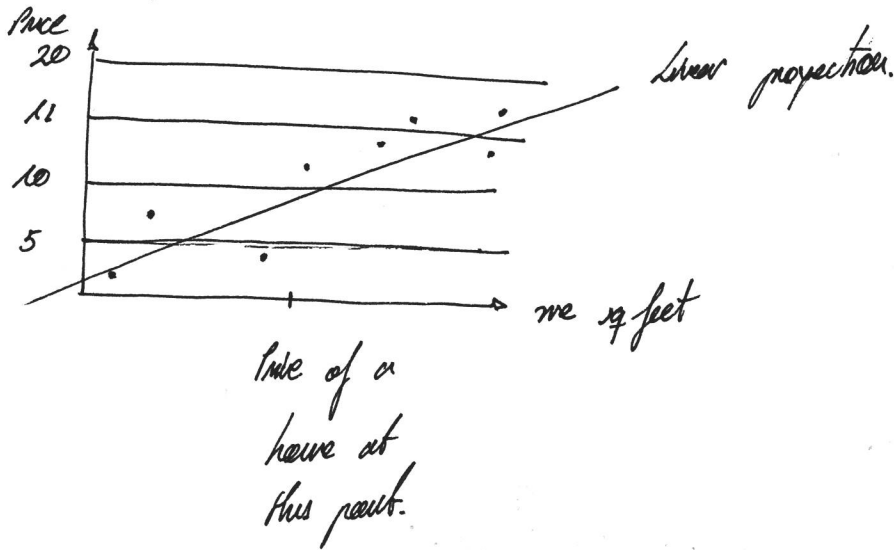 Price
20
11
10
5
Linear projection.
size sq feet
Price of a
house at
this point.